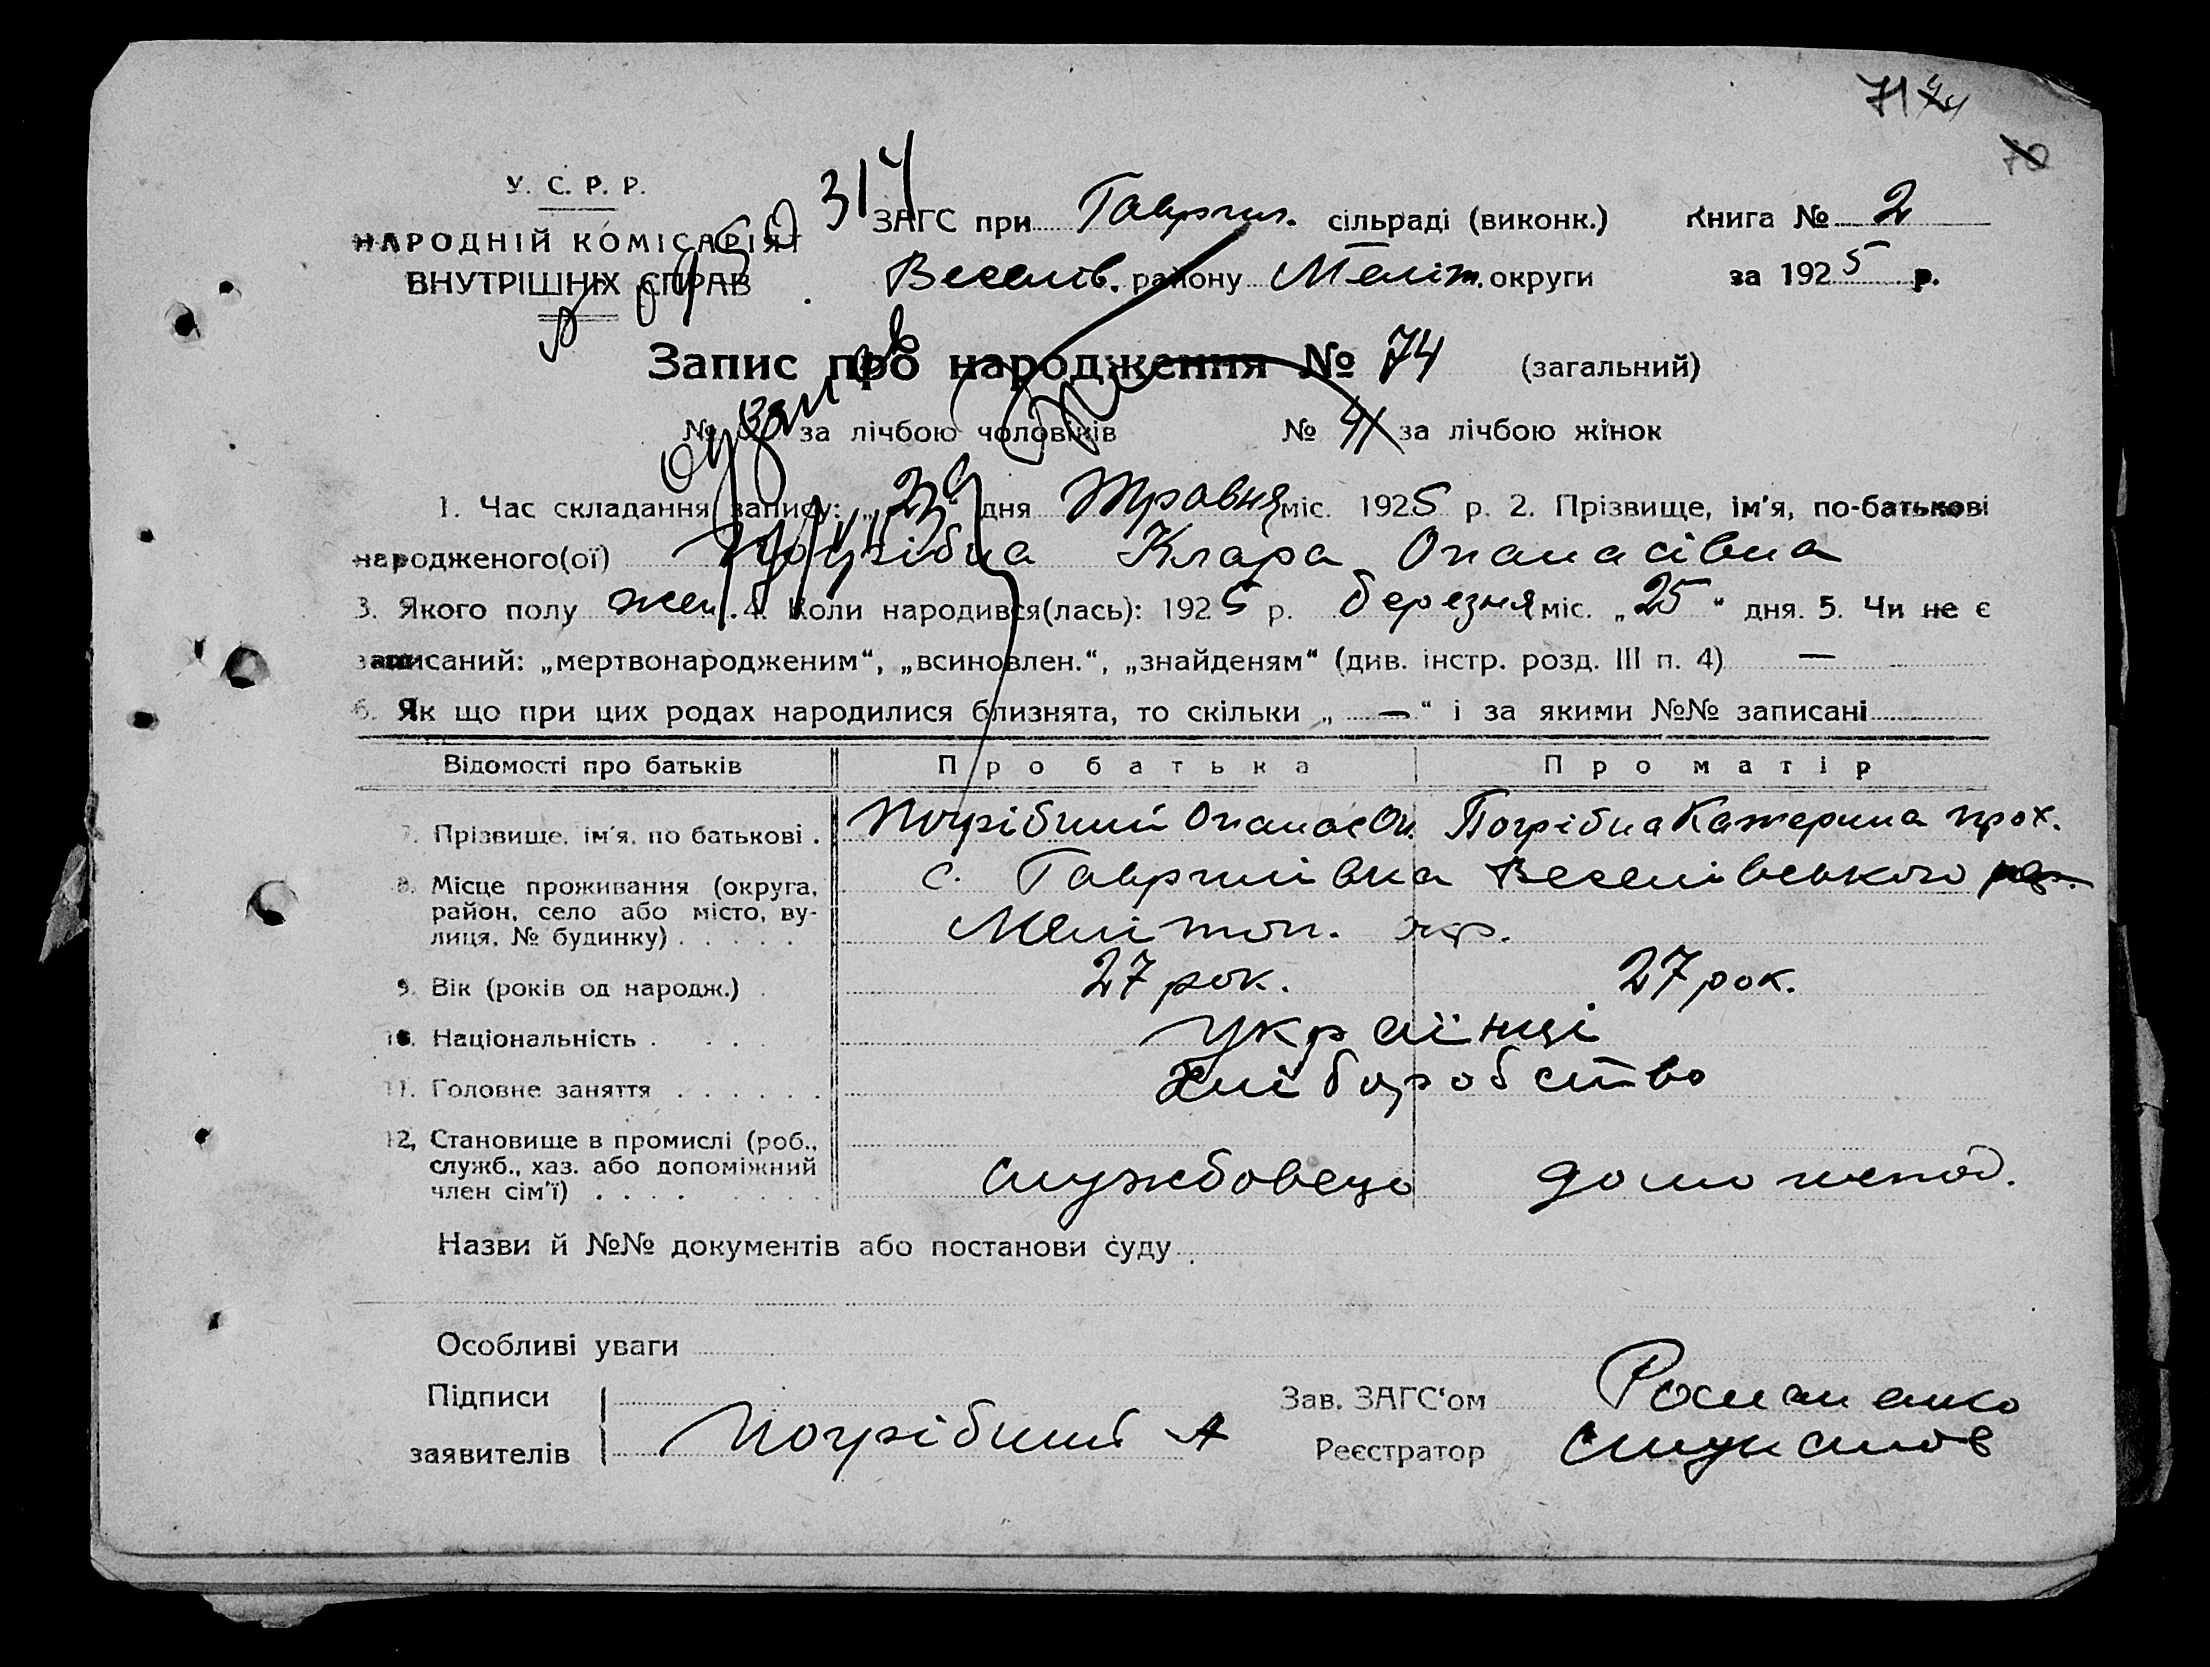 71
70
У. С. Р. Р.
НАРОДНІЙ КОМІСАРІЯТ
ВНУТРІШНІХ СПРАВ
314
ЗАГС при Гаврил. сільраді (виконк.) Книга № 2
Веселів. району Меліт. округи за 1925 р.
Запис про народження № 74 (загальний)
№ за лічбою чоловіків № 41 за лічбою жінок
1. Час складання запису: „23“ дня Травня міс. 1925 р. 2. Прізвище, ім'я, по-батькові
народженого(ої) Погрібна Клара Опанасівна
3. Якого полу жен. 4. Коли народився(лась): 1925 р. березня міс. „25“ дня. 5. Чи не є
записаний: „мертвонародженим“, „всиновлен.“, „знайденям“ (див. інстр. розд. III п. 4) —
6. Як що при цих родах народилися близнята, то скільки „ — “ і за якими №№ записані
Відомості про батьків Про батька Про матір
7. Прізвище, ім'я, по батькові . Погрібний Опанас Оп. Погрібна Катерина Прох.
8. Місце проживання (округа, район, село або місто, вулиця, № будинку) с. Гаврилівка Веселівського рай.
Мелітоп. окр.
9. Вік (років од народж.) . 27 рок. 27 рок.
10. Національність . українці
11. Головне заняття хліборобство
12. Становище в промислі (роб., служб., хаз. або допоміжний член сім'ї) службовець домогоспод.
Назви й №№ документів або постанови суду
Особливі уваги
Підписи
заявителів Погрібний А
Зав. ЗАГС'ом Романенко
Реєстратор